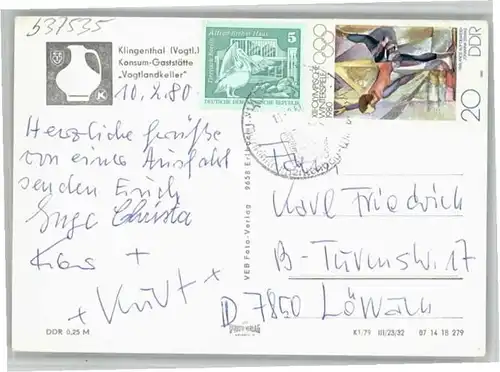 637535
Klingenthal (Vogtl.)
Konsum-Gaststätte
„Vogtlandkeller"
K
10.2.80
Herzliche Grüße
von einer Ausfahrt
senden Erich
Inge Christa
Klaus +
+ Kurt +
DDR 0,25 M
VEB Foto-Verlag 9658 Erlbach
5
DEUTSCHE DEMOKRATISCHE REPUBLIK
XIII. OLYMPISCHE
WINTERSPIELE
1980
DDR
20
Fam.
Karl Friedrich
B-Turmstr. 17
D 7850 Lörrach
K1/79 III/23/32 07 14 18 279